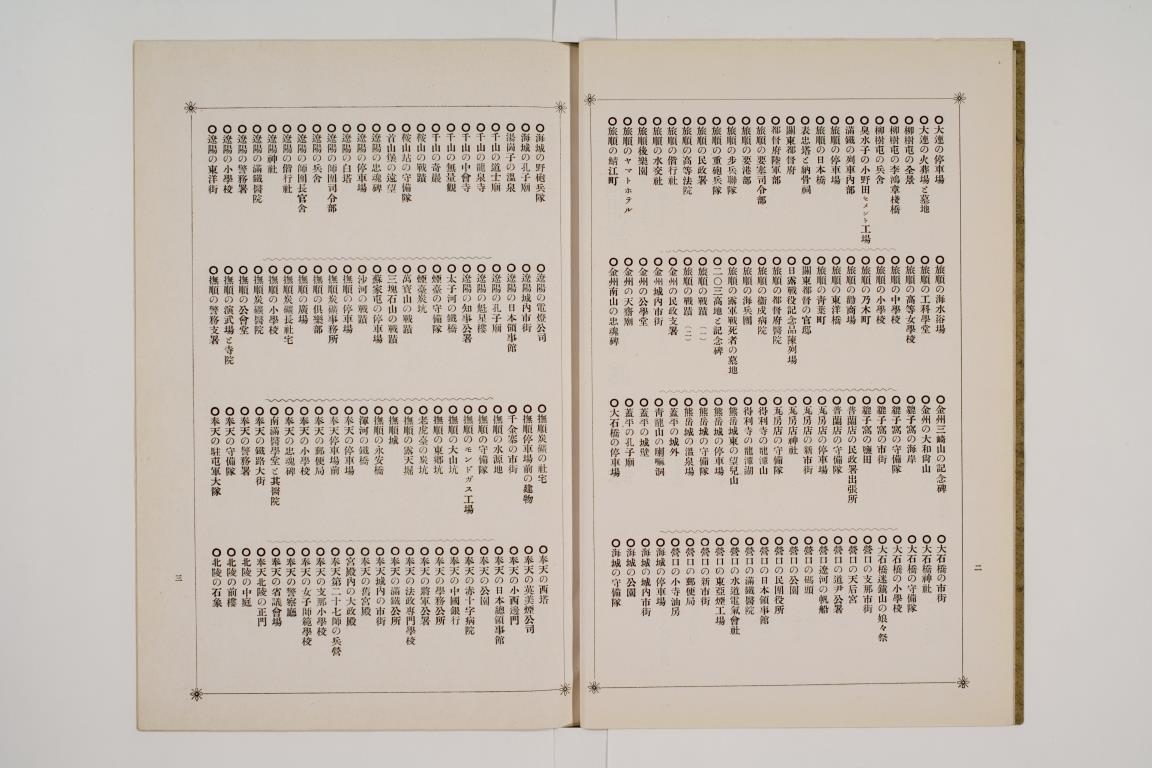 二
○大連の停車場
○大連の火葬場と墓地
○柳樹屯の全景
○柳樹屯の李鴻章棧橋
○柳樹屯の兵舎
○臭水子の小野田セメント工場
○滿鐵の列車内部
○旅順の停車場
○旅順の日本橋
○表忠塔と納骨祠
○關東都督府
○都督府陸軍部
○旅順の要塞司令部
○旅順の要港部
○旅順の步兵聯隊
○旅順の重砲兵隊
○旅順の民政署
○旅順の高等法院
○旅順の偕行社
○旅順の水交社
○旅順後樂園
○旅順のヤマトホテル
○旅順の鯖江町
○旅順の海水浴場
○旅順の工科學堂
○旅順の高等女學校
○旅順の中學校
○旅順の小學校
○旅順の乃木町
○旅順の勸商場
○旅順の東洋橋
○旅順の青葉町
○關東都督の官邸
○日露戰役記念品陳列場
○旅順の都督府醫院
○旅順の衞戍病院
○旅順の海兵團
○旅順の露軍戰死者の墓地
○二〇三高地と記念碑
○旅順の戰蹟（一）
○旅順の戰蹟（二）
○金州の民政支署
○金州城内市街
○金州の公學堂
○金州の天齋廟
○金州南山の忠魂碑
○金州三崎山の記念碑
○金州の大和尙山
○貔子窩の海岸
○貔子窩の守備隊
○貔子窩の市街
○貔子窩の鹽田
○普蘭店の民政署出張所
○普蘭店の守備隊
○瓦房店の停車場
○瓦房店の新市街
○瓦房店神社
○瓦房店の守備隊
○得利寺の龍潭山
○得利寺の龍潭湖
○熊岳城東の望兒山
○熊岳城の停車場
○熊岳城の守備隊
○熊岳城の溫泉場
○蓋平の城外
○靑龍山の喇嘛洞
○蓋平の城壁
○蓋平の孔子廟
○大石橋の停車場
○大石橋の市街
○大石橋神社
○大石橋の守備隊
○大石橋の小學校
○大石橋迷鎭山の娘々祭
○營口の支那市街
○營口の天后宮
○營口の道尹公署
○營口遼河の帆船
○營口の碼頭
○營口の公園
○營口の民團役所
○營口の日本領事館
○營口の滿鐵醫院
○營口の水道電氣會社
○營口の東亞煙工場
○營口の新市街
○營口の郵便局
○營口の小寺油房
○海城の停車場
○海城の城内市街
○海城の公園
○海城の守備隊
○海城の野砲兵隊
○海城の孔子廟
○湯崗子の溫泉
○千山の道士廟
○千山の龍泉寺
○千山の中會寺
○千山の無量觀
○千山の奇巖
○鞍山の戰蹟
○鞍山站の守備隊
○首山堡の遠望
○遼陽の忠魂碑
○遼陽の停車場
○遼陽の白塔
○遼陽の師團司令部
○遼陽の兵舎
○遼陽の師團長官舎
○遼陽の偕行社
○遼陽神社
○遼陽の滿鐵醫院
○遼陽の警務署
○遼陽の小學校
○遼陽の東洋街
○遼陽の電燈公司
○遼陽城内市街
○遼陽の日本領事館
○遼陽の孔子廟
○遼陽の魁星樓
○遼陽の知事公署
○太子河の鐵橋
○煙臺の守備隊
○煙臺炭坑
○萬寶山の戰蹟
○三塊石山の戰蹟
○蘇家屯の停車場
○沙河の戰蹟
○撫順の停車場
○撫順炭礦事務所
○撫順の俱樂部
○撫順の廣場
○撫順炭礦長社宅
○撫順の小學校
○撫順炭礦醫院
○撫順の公會堂
○撫順の演武場と寺院
○撫順の警務支署
○撫順炭礦の社宅
○撫順停車場前の建物
○千金寨の市街
○撫順の水源地
○撫順の守備隊
○撫順のモンドガス工場
○撫順の大山坑
○撫順の東鄕坑
○老虎臺の炭坑
○撫順の露天堀
○撫順城
○撫順の永安橋
○渾河の鐵橋
○奉天の停車場
○奉天停車場前
○奉天の郵便局
○奉天の小學校
○奉天の忠魂碑
○南滿醫學堂と其醫院
○奉天の鐵路大街
○奉天の警務署
○奉天の守備隊
○奉天の駐屯軍大隊
○奉天の西塔
○奉天の英美煙公司
○奉天の小西邊門
○奉天の日本總領事館
○奉天の公園
○奉天の赤十字病院
○奉天の中國銀行
○奉天の學務公所
○奉天の將軍公署
○奉天の法政專門學校
○奉天の滿鐵公所
○奉天城内の市街
○奉天の舊宮殿
○宮殿内の大政殿
○奉天第二十七師の兵營
○奉天の支那小學校
○奉天の女子師範學校
○奉天の警察廳
○奉天の省議會場
○奉天北陵の正門
○北陵の中庭
○北陵の前樓
○北陵の石象
三